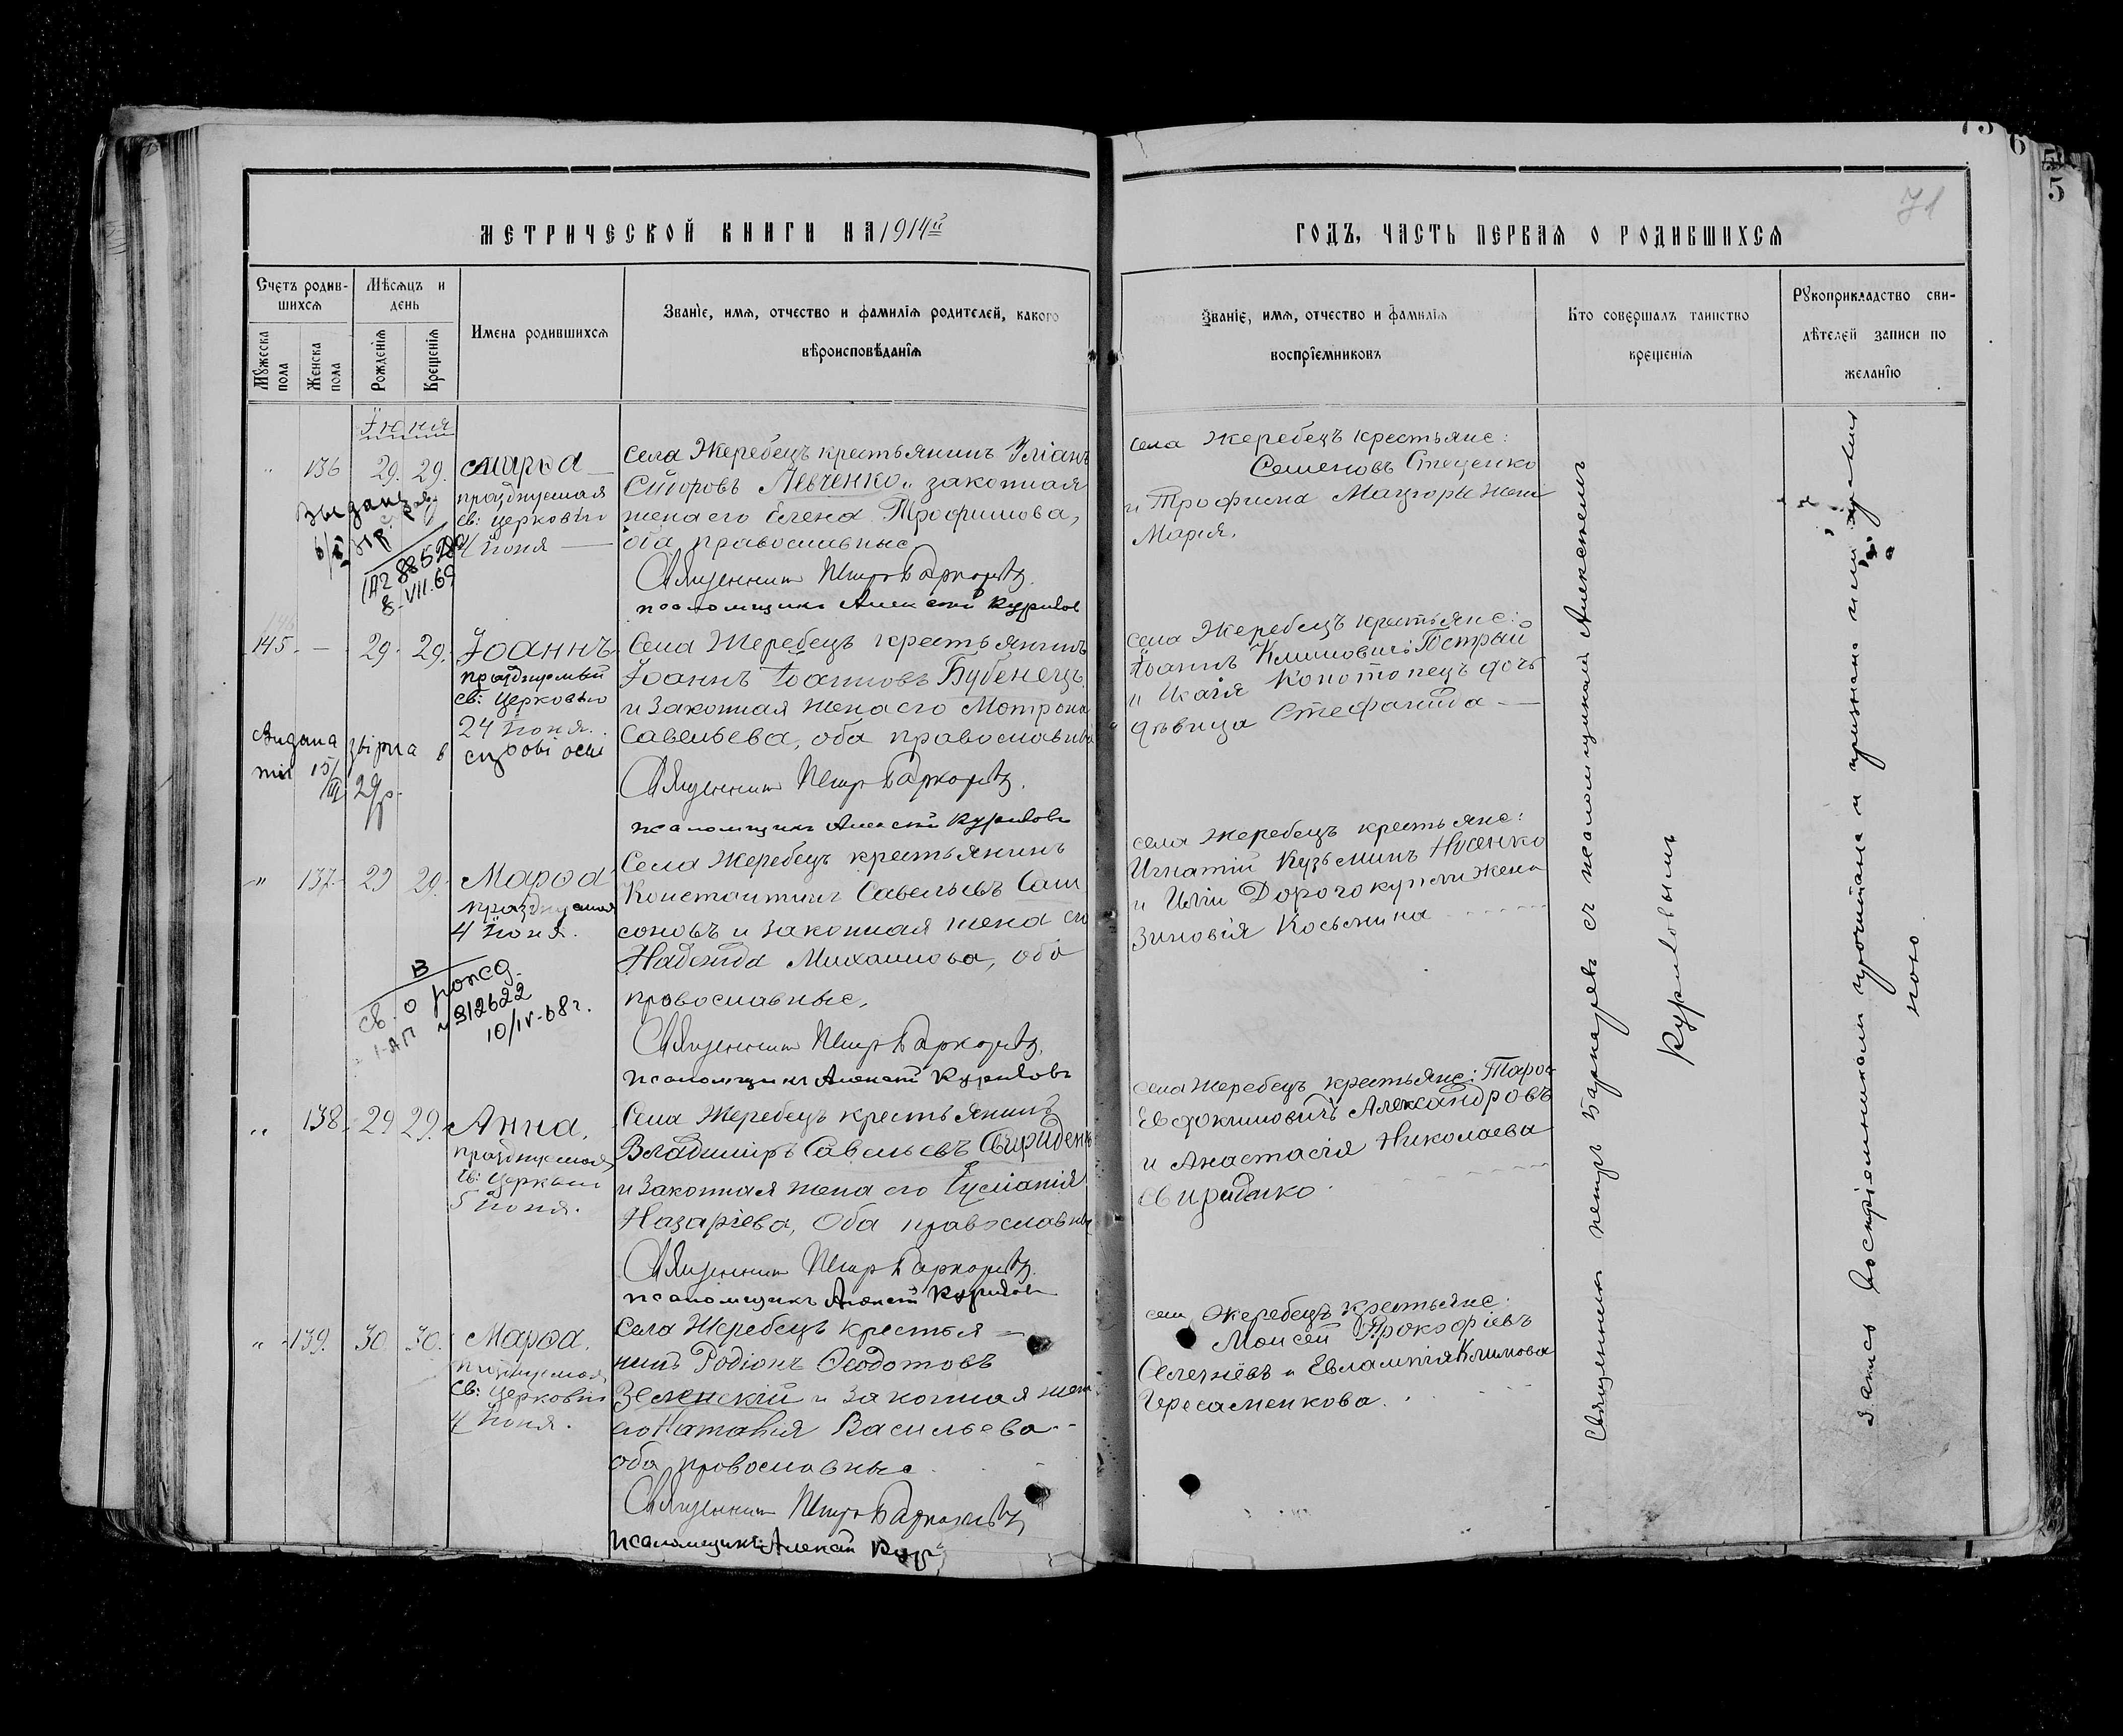 МЕТРИЧЕСКОЙ КНИГИ НА 1914й
ГОДЪ, ЧАСТЬ ПЕРВАЯ О РОДИВШИХСЯ
71
5
Счетъ родив-
шихся
Мужеска
пола
Женска
пола
Мѣсяцъ и
день
Рожденія
Крещенія
Имена родившихся
Званіе, имя, отчество и фамилія родителей, какого
вѣроисповѣданія
Званіе, имя, отчество и фамилія
воспріемниковъ
Кто совершалъ таинство
крещенія
Рукоприкладство сви-
дѣтелей записи по
желанію
Іюня
136 29. 29.
празднуемая
св: церковію
4 Іюня
8-VII.69
Села Жеребецъ крестьянинъ
Левченко и законная
жена его Елена Трофимова,
оба православные
Священникъ Петръ Баркаревъ
псаломщикъ Алексѣй Куриловъ
села Жеребецъ крестьяне:
Семеновъ Стеценко
и Трофима Мацюры жена
Марія.
145. — 29. 29. Іоаннъ
празднуемый
св: Церковью
24 Іюня.
Видана
15/III 29р.
Села Жеребецъ крестьянинъ
Іоаннъ Іоанновъ Бубенецъ
и законная жена его Мотрона
Савельева, оба православные
Священникъ Петръ Баркаревъ.
псаломщикъ Алексѣй Куриловъ
села Жеребецъ крестьяне:
Іоаннъ Климовичъ Гострый
и Исаія Конотопецъ дочь
дѣвица Стефанида —
„ 137. 29 29. Марѳа
празднуемая
4 Іюня.
В
св. о рожд.
312622
10/IV-68г.
Села Жеребецъ крестьянинъ
Константинъ Савельевъ Сам
соновъ и законная жена его
Надежда Михаилова, оба
православные,
Священникъ Петръ Баркаревъ.
псаломщикъ Алексѣй Куриловъ
села Жеребецъ крестьяне:
Игнатій Кузьминъ Носенко
и Иліи Дорогокупли жена
Зиновія Косьмина
„ 138. 29 29. Анна.
празднуемая
св: Церковію
5 Іюня.
Села Жеребецъ крестьянинъ
Владиміръ Савельевъ Свириденко
и законная жена его
Назаріева, Оба православные
Священникъ Петръ Баркаревъ.
псаломщикъ Алексѣй Куриловъ
села Жеребецъ крестьяне: Тарас
Евдокимовичъ Александровъ
и Анастасія Николаева
Свириденко
„ 139. 30 30. Марѳа.
празднуемая
св: Церковію
4 Іюня.
Села Жеребецъ крестья =
нинъ Родіонъ Ѳеодотовъ
Зеленскій и законная жена
его Наталія Васильева
оба православные
Священникъ Петръ Баркаревъ
псаломщикъ Алексѣй Кур
села Жеребецъ крестьяне:
Моисей Прокофіевъ
Селезнёвъ и Евлампія Климова
Чересменкова.
Священникъ Петръ Баркаревъ съ псаломщикомъ Алексѣемъ
Куриловымъ
Запись воспріемникамъ прочитана и признана ими правиль
ною